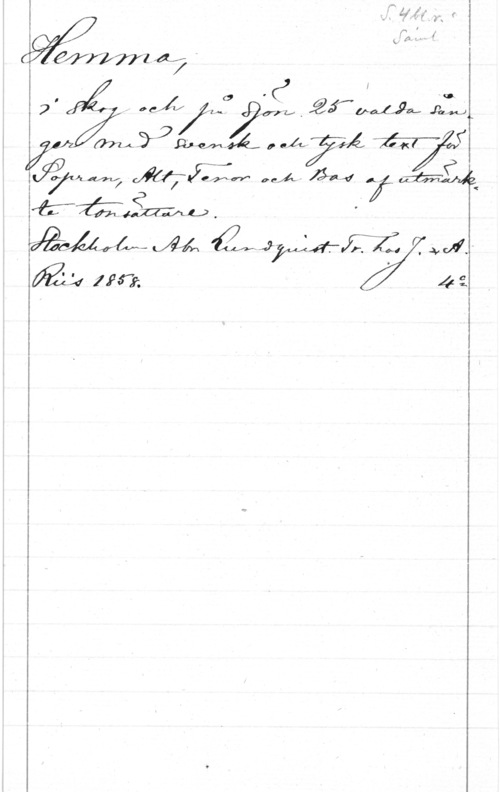 S. 4 bl. r.
Saml
Hemma,
i skog och på sjön. 25 valda sån-
ger med svensk och tysk text för
Sopran, Alt, Tenor och Bas af utmärk-
te tonsättare.
Stockholm Abr. Lundquist. Tr. hos J. & A.
Riis 1858. 4º